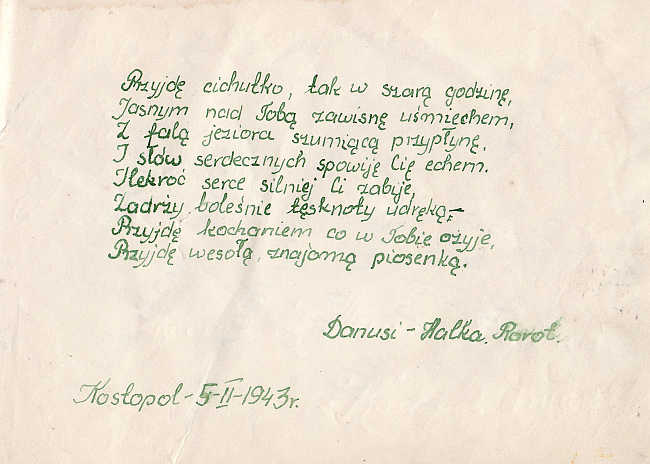 Przyjdę cichutko, tak w szarą godzinę,
Jasnym nad Tobą zawisnę uśmiechem,
Z falą jeziora szumiącą przypłynę,
I słów serdecznych spowiję Cię echem.
Ilekroć serce silniej Ci zabije,
Zadrży boleśnie tęsknoty udręką,–
Przyjdę kochaniem co w Tobie ożyje,
Przyjdę wesołą, znajomą piosenką.
Danusi – Halka
Kostopol – 5-II-1943r.